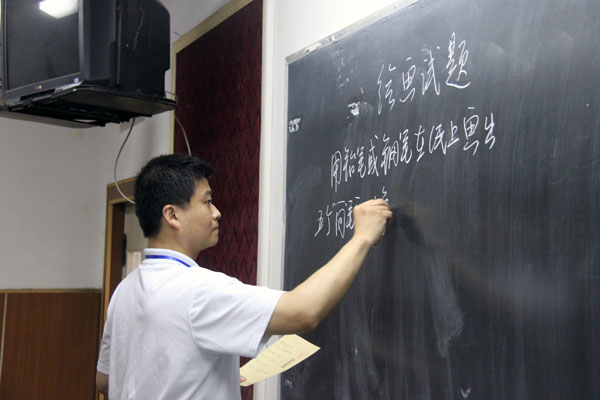 绘画试题
用铅笔或钢笔在纸上画出
五个同